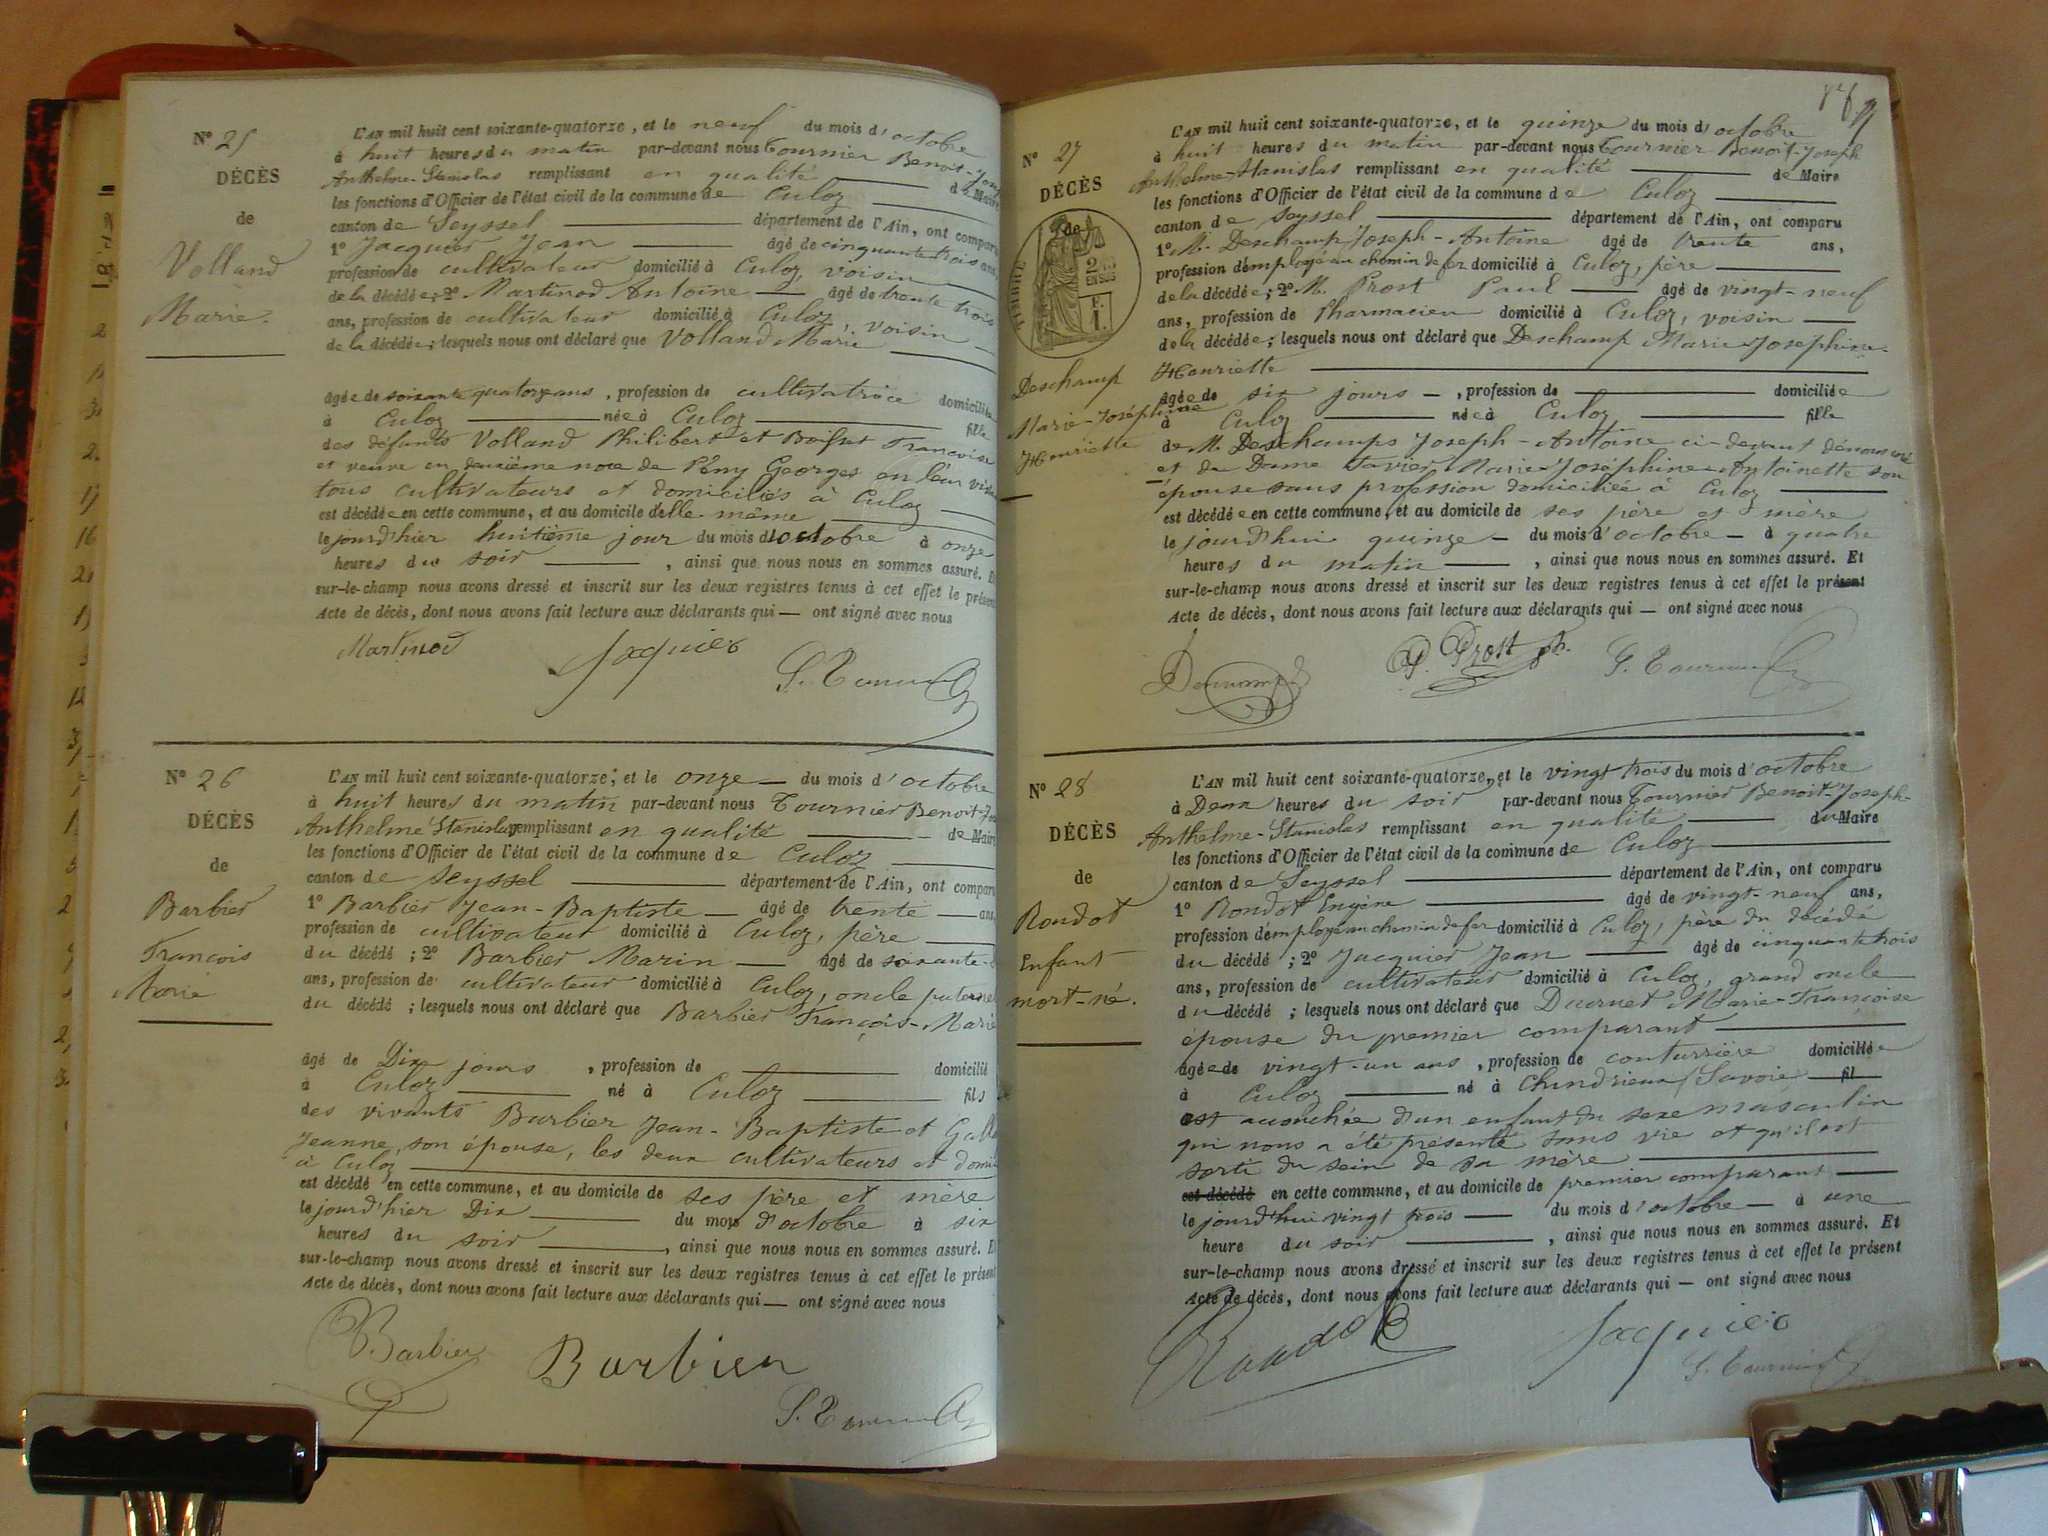 N° 25
DÉCÈS
de
Volland
Marie.
L'AN mil huit cent soixante-quatorze, et le neuf du mois d'octobre
à huit heures du matin par-devant nous Tournier Benoit-Jose
Anthelme-Stanislas remplissant en qualité de Maire
les fonctions d'Officier de l'état civil de la commune de Culoz
canton de Seyssel département de l'Ain, ont comparu
1° Jacquier Jean âgé de cinquante trois ans,
profession de cultivateur domicilié à Culoz, voisin
de la décédée; 2° Martinod Antoine âgé de trente trois
ans, profession de cultivateur domicilié à Culoz, voisin
de la décédée; lesquels nous ont déclaré que Volland Marie
âgée de soixante quatorze ans, profession de cultivatrice domiciliée
à Culoz née à Culoz fille
des défunts Volland Philibert et Françoise
et veuve en deuxième noce de Pény Georges en leur viv
tous cultivateurs et domiciliés à Culoz
est décédée en cette commune, et au domicile d'elle même
le jourd'hier huitième jour du mois d'octobre à onze
heures du soir, ainsi que nous nous en sommes assuré. Et
sur-le-champ nous avons dressé et inscrit sur les deux registres tenus à cet effet le présent
Acte de décès, dont nous avons fait lecture aux déclarants qui — ont signé avec nous
Martinod Jaquier
N° 26
DÉCÈS
de
Barbier
François
Marie
L'AN mil huit cent soixante-quatorze, et le onze du mois d'octobre
à huit heures du matin par-devant nous Tournier Benoit-Jo
Anthelme Stanislas remplissant en qualité de Maire
les fonctions d'Officier de l'état civil de la commune de Culoz
canton de Seyssel département de l'Ain, ont comparu
1° Barbier Jean-Baptiste âgé de trente ans,
profession de cultivateur domicilié à Culoz, père
du décédé; 2° Barbier Marin âgé de soixante-
ans, profession de cultivateur domicilié à Culoz, oncle paternel
du décédé; lesquels nous ont déclaré que Barbier François-Marie
âgé de Dix jours, profession de domicilié
à Culoz né à Culoz fils
des vivants Barbier Jean-Baptiste et
Jeanne, son épouse, les deux cultivateurs et domi
à Culoz
est décédé en cette commune, et au domicile de ses père et mère
le jourd'hier Dix du mois d'octobre à six
heures du soir, ainsi que nous nous en sommes assuré. Et
sur-le-champ nous avons dressé et inscrit sur les deux registres tenus à cet effet le présent
Acte de décès, dont nous avons fait lecture aux déclarants qui — ont signé avec nous
Barbier Barbier
N° 27
DÉCÈS
de
TIMBRE
Deschamp
Marie-Joséphine
Henriette
L'AN mil huit cent soixante-quatorze, et le quinze du mois d'octobre
à huit heures du matin par-devant nous Tournier Benoit-Joseph
Anthelme-Stanislas remplissant en qualité de Maire
les fonctions d'Officier de l'état civil de la commune de Culoz
canton de Seyssel département de l'Ain, ont comparu
1° M. Deschamp Joseph-Antoine âgé de trente ans,
profession d'employé au chemin de fer domicilié à Culoz, père
de la décédée; 2° M. Prost Paul âgé de vingt-neuf
ans, profession de Pharmacien domicilié à Culoz, voisin
de la décédée; lesquels nous ont déclaré que Deschamp Marie-Joséphine-
Henriette
âgée de six jours, profession de domiciliée
à Culoz née à Culoz fille
de M. Deschamps Joseph-Antoine ci-devant dénommé
et de Dame Marie-Joséphine-Antoinette son
épouse sans profession domiciliée à Culoz
est décédée en cette commune, et au domicile de ses père et mère
le jourd'hui quinze du mois d'octobre à quatre
heures du matin, ainsi que nous nous en sommes assuré. Et
sur-le-champ nous avons dressé et inscrit sur les deux registres tenus à cet effet le présent
Acte de décès, dont nous avons fait lecture aux déclarants qui — ont signé avec nous
P. Prost ph.
N° 28
DÉCÈS
de
Rondot
Enfant
mort-né.
L'AN mil huit cent soixante-quatorze, et le vingt trois du mois d'octobre
à Deux heures du soir par-devant nous Tournier Benoit-Joseph-
Anthelme-Stanislas remplissant en qualité du Maire
les fonctions d'Officier de l'état civil de la commune de Culoz
canton de Seyssel département de l'Ain, ont comparu
1° Rondot Eugène âgé de vingt-neuf ans,
profession d'employé au chemin de fer domicilié à Culoz, père du décédé
du décédé; 2° Jacquier Jean âgé de cinquante trois
ans, profession de cultivateur domicilié à Culoz, grand oncle
du décédé; lesquels nous ont déclaré que Ducruet Marie-Françoise
épouse du premier comparant
âgée de vingt-un ans, profession de couturrière domiciliée
à Culoz né à Chindrieux (Savoie) fil
est accouchée d'un enfant du sexe masculin
qui nous a été présenté sans vie et qu'il est
sorti du sein de sa mère
est décédé en cette commune, et au domicile de premier comparant
le jourd'hui vingt trois du mois d'octobre à une
heure du soir, ainsi que nous nous en sommes assuré. Et
sur-le-champ nous avons dressé et inscrit sur les deux registres tenus à cet effet le présent
Acte de décès, dont nous avons fait lecture aux déclarants qui — ont signé avec nous
Rondot Jaquier